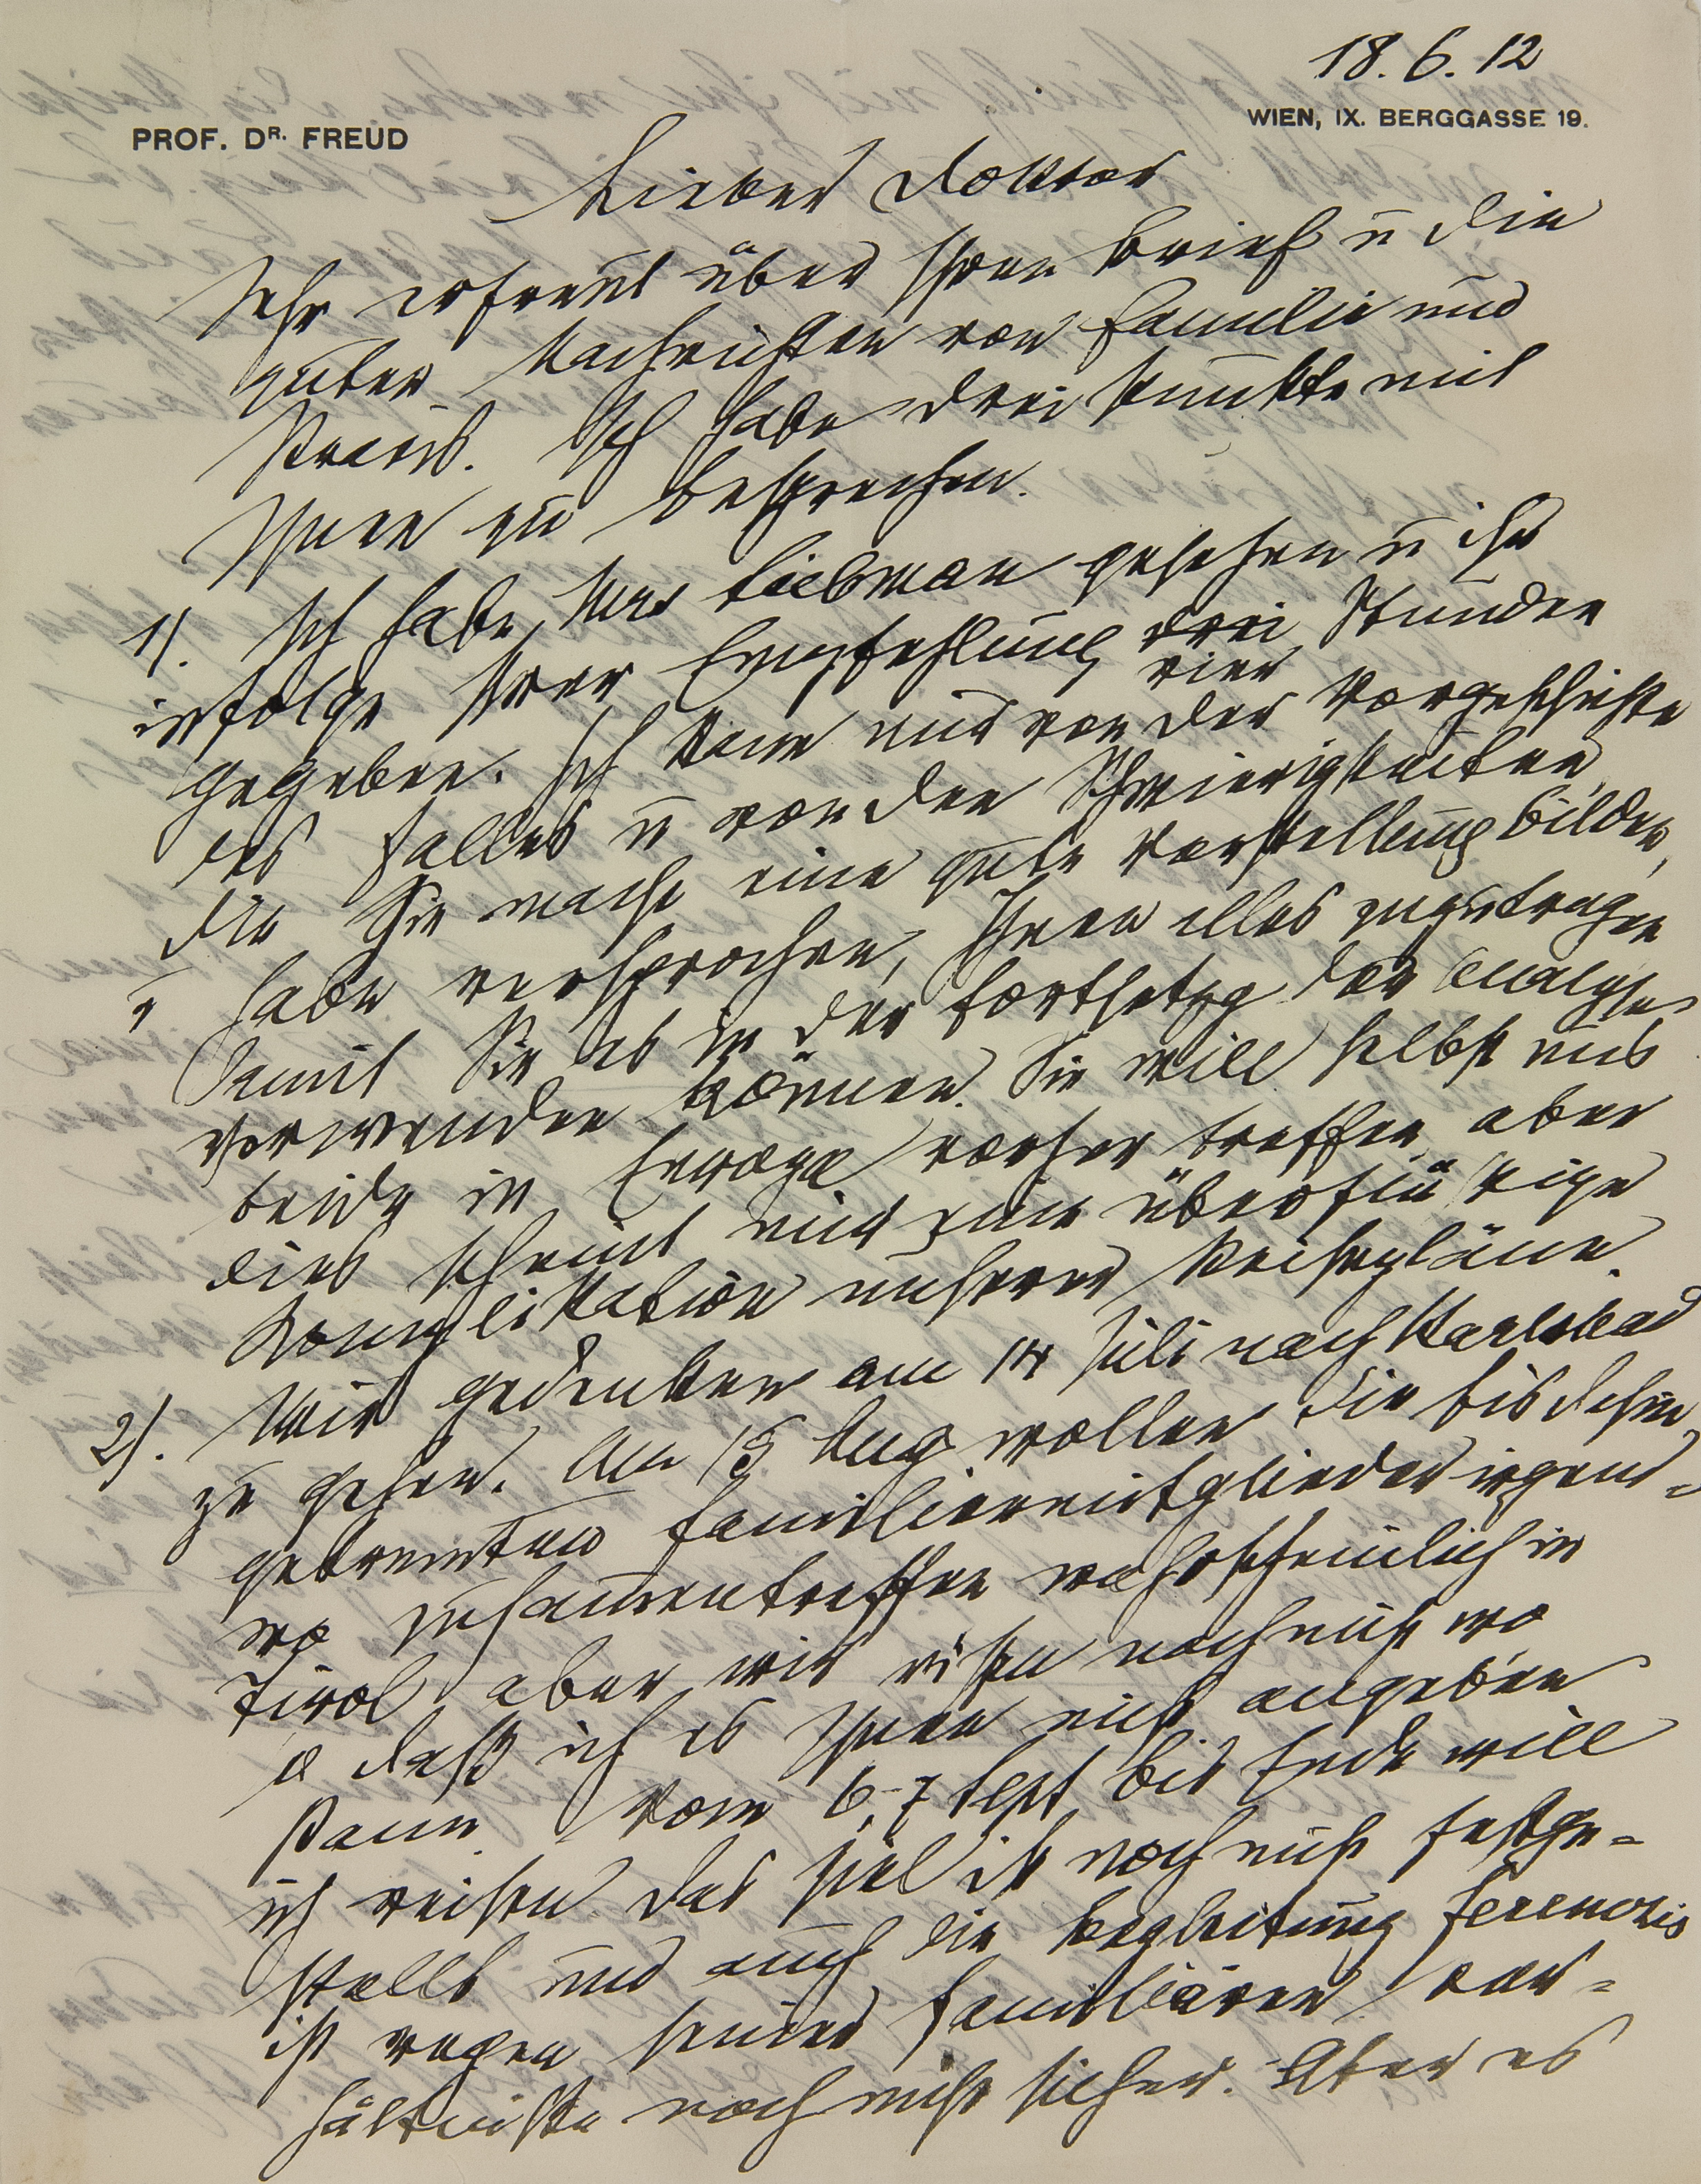 18. 6. 12
PROF. DR. FREUD
WIEN, IX. BERGGASSE 19.
Lieber Doktor
Sehr erfreut über Ihren Brief u die
guten Nachrichten von Familie und
Praxis. Ich habe drei Punkte mit
Ihnen zu besprechen.
1). Ich habe Mrs gesehen u ihr
infolge Ihrer Empfehlung drei Stunden
vier
gegeben. Ich kann mir von der Vorgeschichte
des Falles u von den Schwierigkeiten,
die Sie macht eine gute Vorstellung bilden,
u habe versprochen, Ihnen alles zuzutragen
damit Sie es in der Fortsetzg der Analyse
verwenden können. Sie will selbst uns
beide in vorher treffen, aber
dies scheint mir eine überflüssige
Komplikation unserer Reisepläne.
2). Wir gedenken am 14 Juli nach Karlsbad
zu gehen. Am 15 Aug wollen die bis dahin
getrennten Familienmitglieder irgend=
wo zusammentreffen wahrscheinlich in
Tirol, aber wir wissen noch nicht wo
so daß ich es Ihnen nicht angeben
kann. Vom 6-7 Sept bis Ende will
ich reisen. Das Ziel ist noch nicht festge=
stellt und auch die Begleitung Ferenczis
ist wegen seiner familiären Ver=
hältnisse noch nicht sicher. Aber es